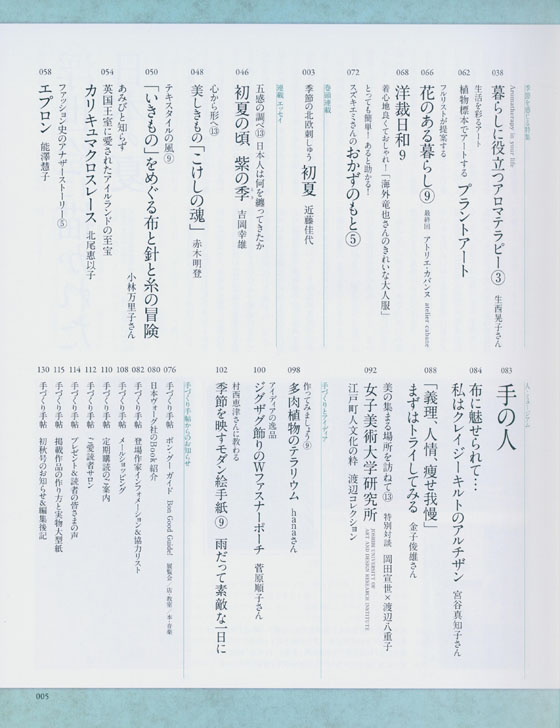 季節を感じる特集
038
Aromatherapy in your life
暮らしに役立つアロマテラピー③ 生西晃子さん
062
生活を彩るアート
植物標本でアートする プラントアート
066
フルリストが提案する
花のある暮らし⑨ 最終回 アトリエ・カバンヌ atelier cabane
068
洋裁日和 9
着心地良くておしゃれ! 「海外竜也さんのきれいな大人服」
072
とっても簡単! あると助かる!
スズキエミさんのおかずのもと⑤
巻頭連載
003
季節の北欧刺しゅう 初夏 近藤佳代
連載 エッセイ
046
五感の調べ⑬ 日本人は何を纏ってきたか
初夏の頃 紫の季 吉岡幸雄
048
心から形へ⑬
美しきもの「こけしの魂」 赤木明登
050
テキスタイルの風⑨
「いきもの」をめぐる布と針と糸の冒険
小林万里子さん
054
あみびと知らず
英国王室に愛されたアイルランドの至宝
カリキュマクロスレース 北尾惠以子
058
ファッション史のアナザーストーリー⑤
エプロン 能澤慧子
083
手の人
084
布に魅せられて…
私はクレイジーキルトのアルチザン 宮谷真知子さん
088
「義理、人情、痩せ我慢」
まずはトライしてみる 金子俊雄さん
092
美の集まる場所を訪ねて⑬ 特別対談 岡田宣世×渡辺八重子
女子美術大学研究所
JOSHIBI UNIVERSITY OF
ART AND DESIGN RESEARCH INSTITUTE
江戸町人文化の粋 渡辺コレクション
手づくりアイディア
098
作ってみましょう⑨
多肉植物のテラリウム hanaさん
100
アイディアの逸品
ジグザグ飾りのWファスナーポーチ 菅原順子さん
102
村西恵津さんに教わる
季節を映すモダン絵手紙⑨ 雨だって素敵な一日に
手づくり手帖からのお知らせ
076 手づくり手帖 ボン・グーガイド Bon Good Guide! 展覧会・店・教室・本・音楽
080 日本ヴォーグ社のBook紹介
082 手づくり手帖 登場作家インフォメーション&協力リスト
108 手づくり手帖 メールショッピング
110 手づくり手帖 定期購読のご案内
112 手づくり手帖 ご愛読者サロン
114 手づくり手帖 プレゼント&読者の皆さまの声
115 手づくり手帖 掲載作品の作り方と実物大型紙
130 手づくり手帖 初秋号のお知らせ&編集後記
005